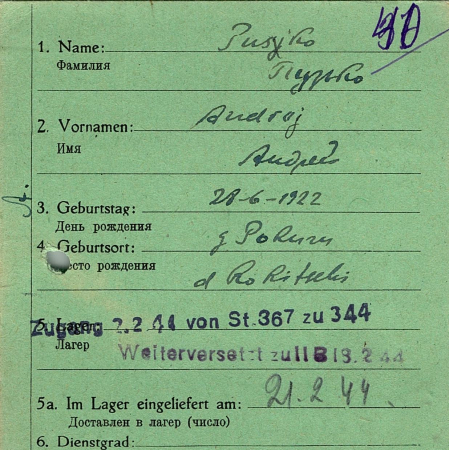 40
1. Name: Pusjko
Фамилия Пузько
2. Vornamen: Andrej
Имя Андрей
3. Geburtstag: 28-6-1922
День рождения
4. Geburtsort: g
место рождения d Rokitschi
5. Lager:
Zugang 2.2 44 von St.367 zu 344
Лагер
Weiterversetzt zu II B 19.2 44
5a. Im Lager eingeliefert am: 21.2 44.
Доставлен в лагер (число)
6. Dienstgrad: